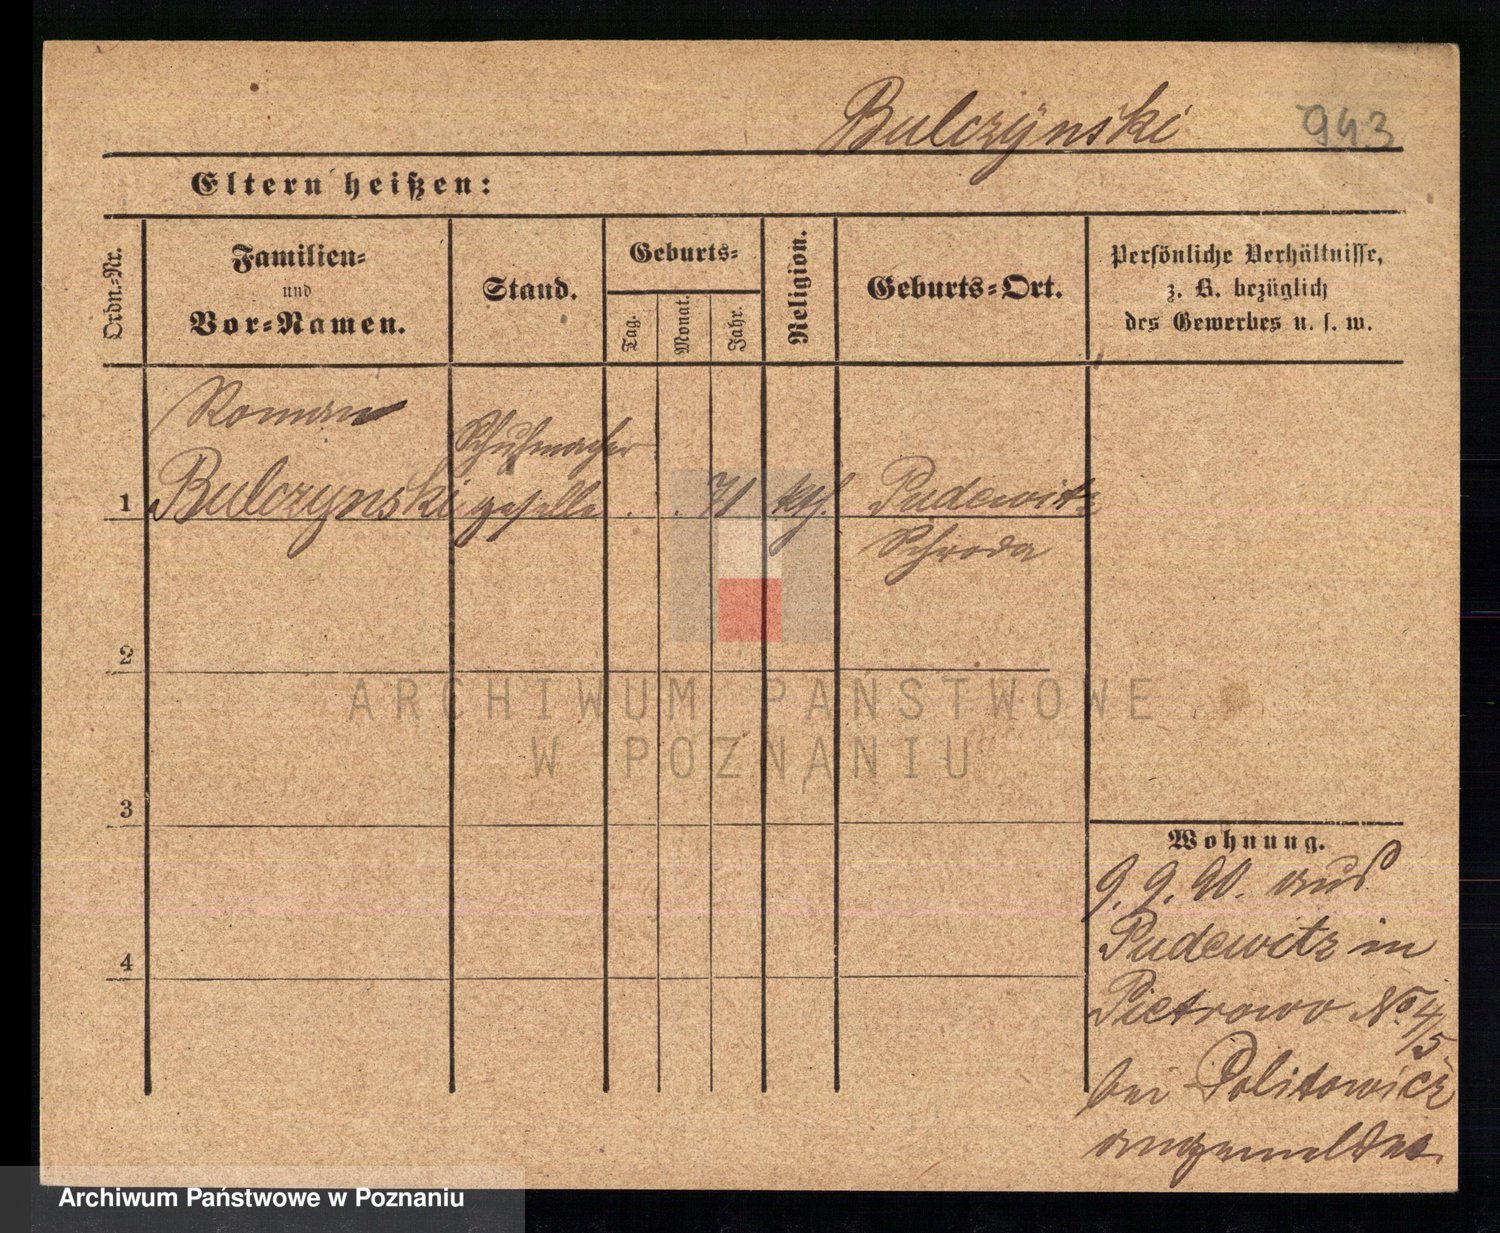 Bulczÿnski 943
Eltern heißen:
Ordn.-Nr.
Familien-
und
Vor-Namen.
Stand.
Geburts-
Tag.
Monat.
Jahr.
Religion.
Geburts-Ort.
Persönliche Verhältnisse,
z. B. bezüglich
des Gewerbes u. s. w.
Roman
Schuhmacher
1 Bulczynski geselle . . 71 kth. Pudewitz
Schroda
2
3
4
Wohnung.
9. 9. 90. aus
Pudewitz in
Pietrowo No 4/5
bei Politowicz
angemeldet.
ARCHIWUM PAŃSTWOWE
W POZNANIU
Archiwum Państwowe w Poznaniu